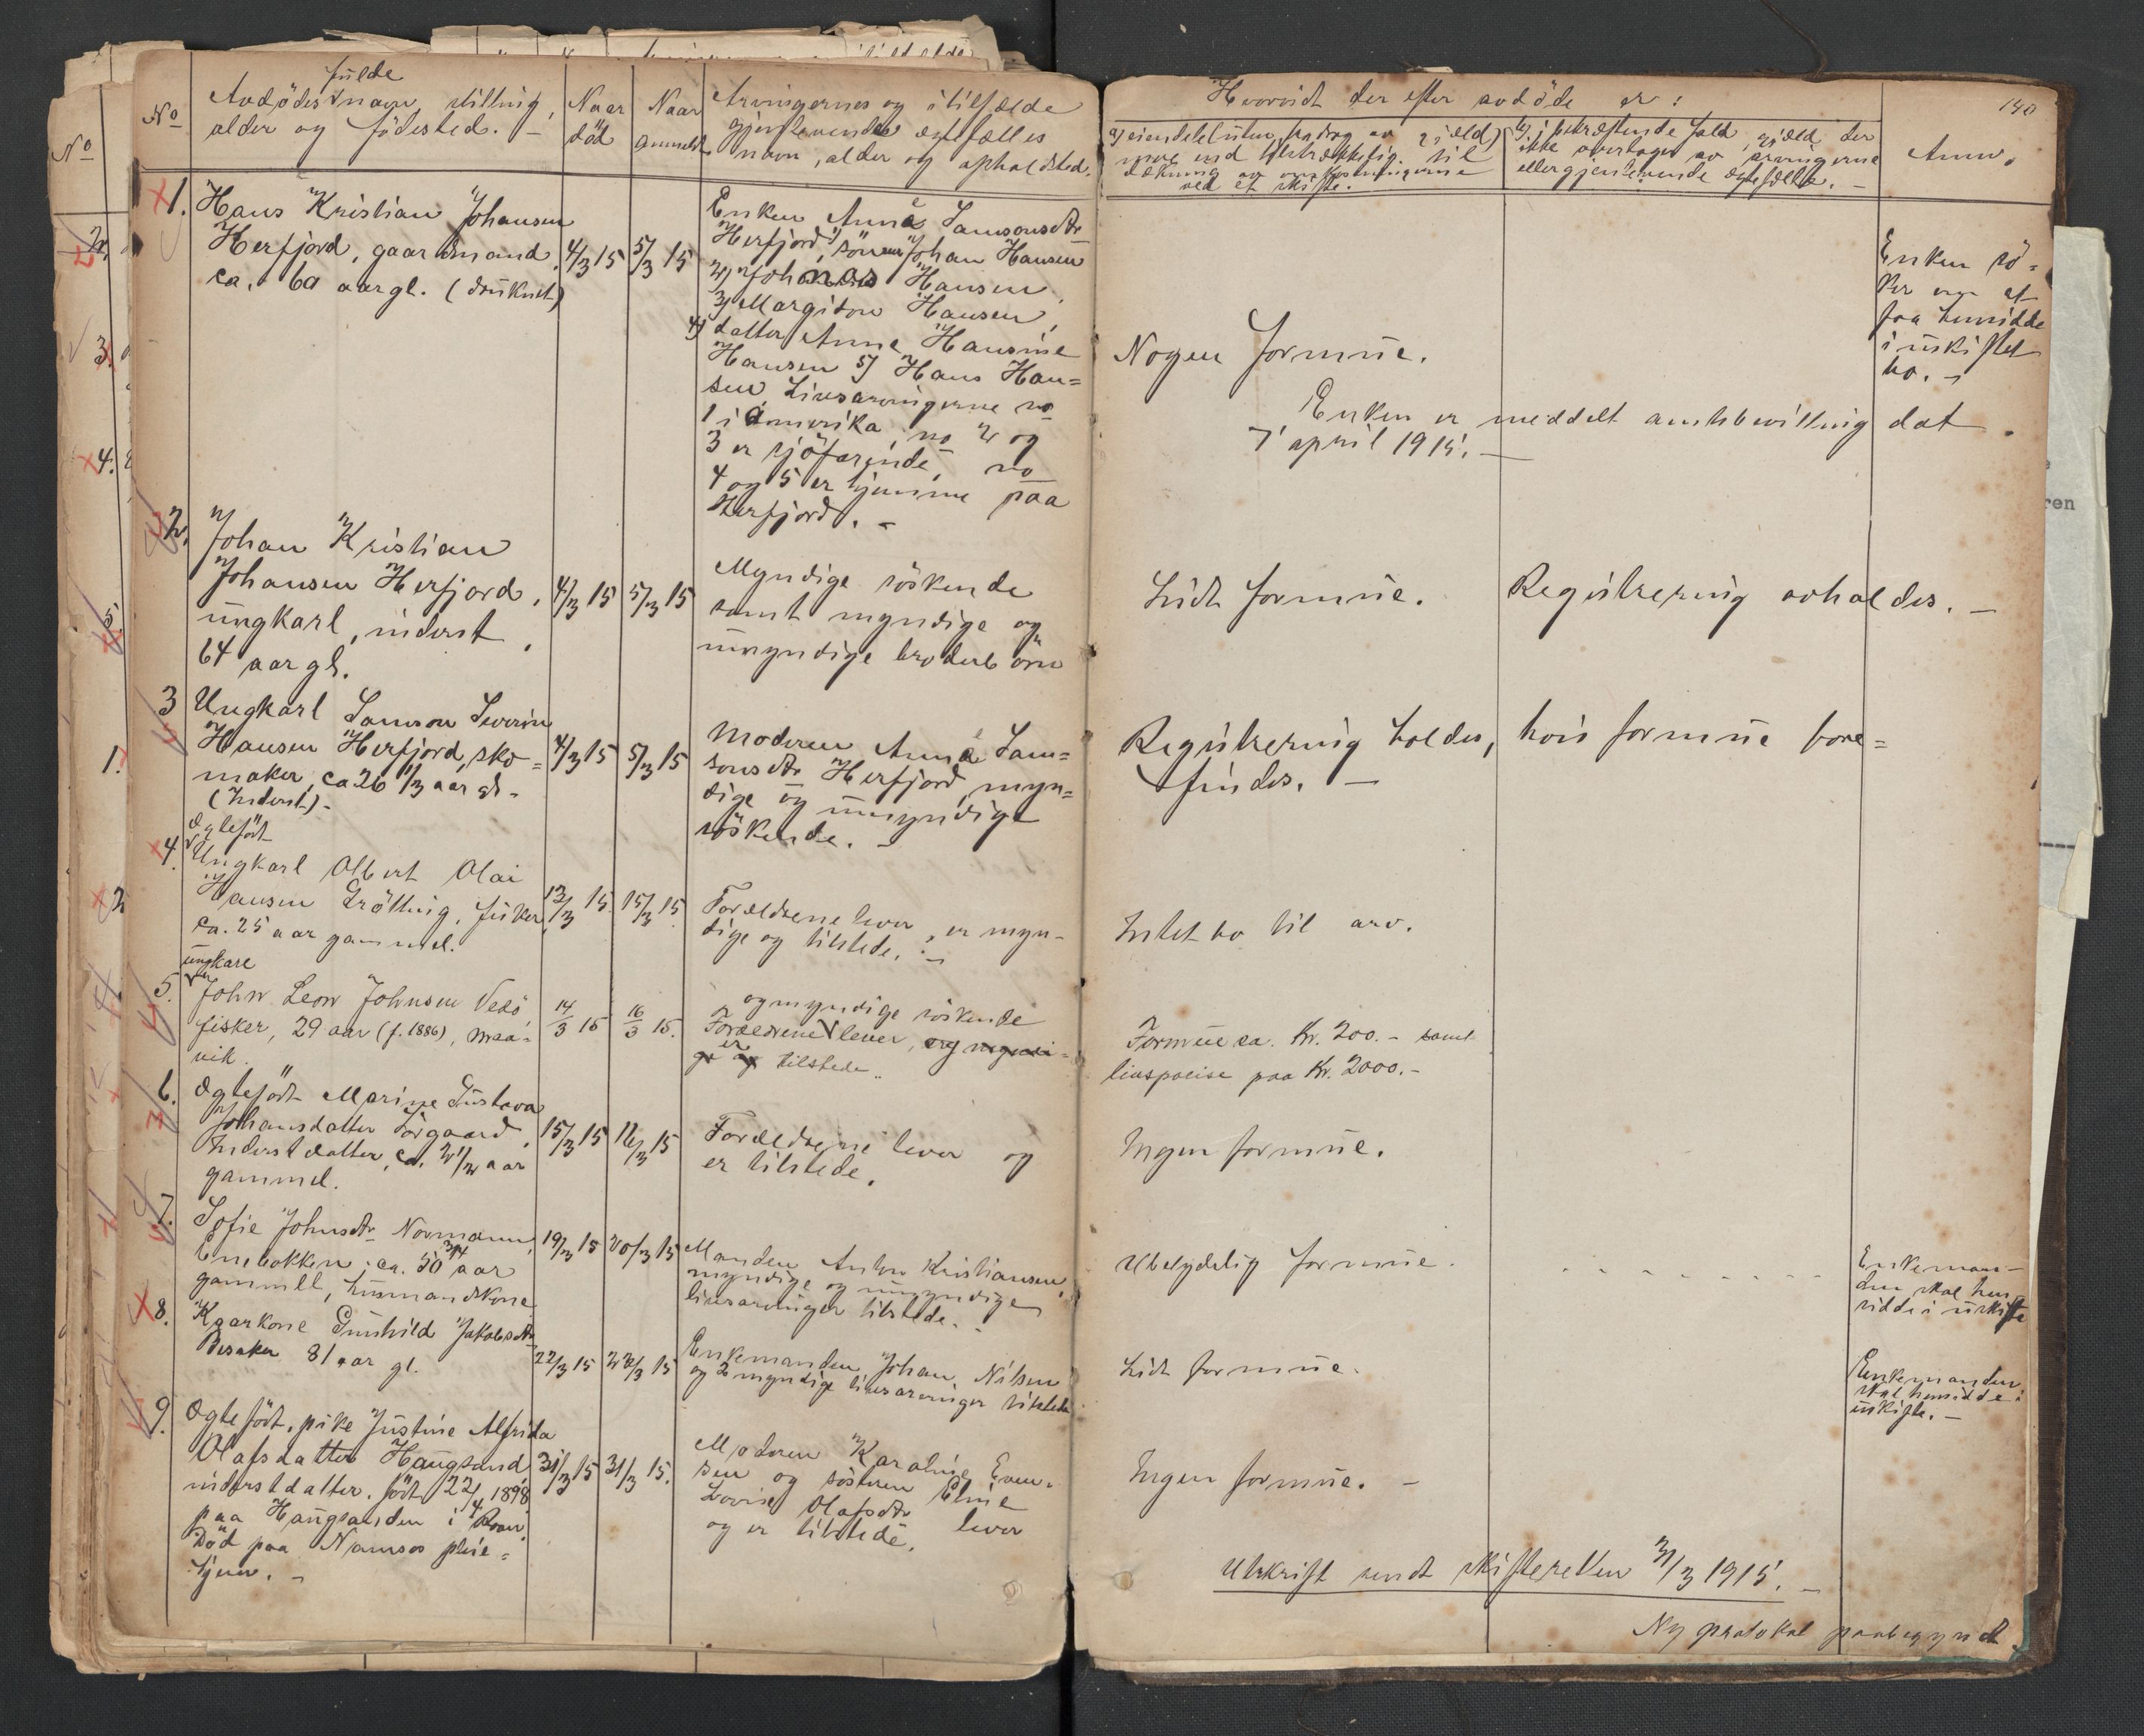 No
Avdödes fulde navn, stilling,
alder og födested. –
Naar
död
Naar
anmeldt
Arvingernes og i tilfælde
gjenlevende ægtefælles
navn, alder og opholdssted.
1. Hans Kristian Johansen
Herfjord, gaardmand,
ca. 60 aar gl. (druknet)
4/3 15
5/3 15
Enken Anna Samsonsdtr
Herfjord, 1) sönnen Johan Hansen
2) Johannes Hansen,
3) Margiton Hansen,
4) datter Anne Hansine
Hansen 5) Hans Han=
sen. Livsarvingerne no
1 i Amerika, no 2 og
3 er sjöfarende, no
4 og 5 er hjemme paa
Herfjord. –
2. Johan Kristian
Johansen Herfjord,
ungkarl, inderst,
64 aar gl.
4/3 15
5/3 15
Myndige söskende
samt myndige og
umyndige broderbörn
3 Ungkarl Samson Severin
Hansen Herfjord, sko=
maker, ca 26 1/3 aar gl.
(Inderst) –
4/3 15
5/3 15
Moderen Anna Sam=
sonsdtr Herfjord, myn=
dige og umyndige
söskende. –
4. Ægtefödt
Ungkarl Albert Olai
Hansen Grötting, fisker,
ca. 25 aar gammel.
12/3 15
15/3 15
Forældrene lever, er myn-
dige og tilstede. –
5. ungkare
John Leon Johnsen Vesö
fisker, 29 aar (f. 1886), Maa-
vik.
14/3 15
16/3 15.
og myndige söskende
Forældrene lever, og myndi-
ge og er tilstede.
6. Ægtefödt Marine Gustava
Johansdatter Sörgaard,
Inderstdatter, ca. 2 1/2 aar
gammel.
15/3 15
Forældrene lever og
er tilstede.
7. Sofie Johnsdtr Normann
Enebakken, ca. 50 3/4 aar
gammel, husmandskone
19/3 15
20/3 15
Manden Anton Kristiansen,
myndige og umyndige
livsarvinger tilstede. –
8. Kaarkone Gunhild Jakobsdtr
Besaker 81 aar gl.
22/3 15
Enkemanden Johan Nilsen
og 2 myndige livsarvinger tilstede
9. Ægtefödt, pike Justine Alfrida
Olafsdatter Haugsand
inderstdatter. födt 22/4 1898
paa Haugsanden i Roan.
Död paa Namsos pleie=
hjem. –
31/3 15
31/3 15.
Moderen Karoline Even-
sen og sösteren Eline
Lovise Olafsdtr lever
og er tilstede.
140
Hvorvidt der efter avdöde er:
a) eiendele (uten fradrag av gjæld)
mere end tilstrækkelig til
dækning av omkostningerne
ved et skifte.
b) i bekræftende fald, gjæld der
ikke overtages av arvingerne
eller gjenlevende ægtefælle. –
Anm.
Nogen formue.
Enken er meddelt amtsbevilling dat.
7 april 1915. –
Enken sö-
ker om at
faa hensidde
i uskiftet
bo. –
Lidt formue. Registrering avholdes. –
Registrering holdes, hvis formue fore=
findes. –
Intet bo til arv.
Formue ca. Kr. 200.– samt
livspolise paa Kr. 2000.–
Ingen formue.
Ubetydelig formue.
Enkeman-
den skal hen-
sidde i uskifte
Lidt formue.
Enkemanden
skal hensidde i
uskifte. –
Ingen formue. –
Utskrift sendt skifteretten 31/3 1915. –
Ny protokol paabegyndt